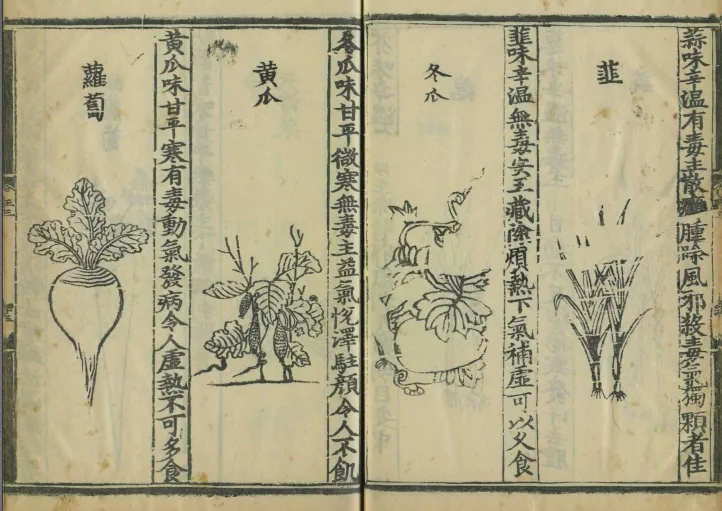 蒜味辛溫有毒主散癰腫除風邪殺毒氣獨顆者佳
韮
韮味辛溫無毒安五藏除煩熱下氣補虛可以久食
冬瓜
冬瓜味甘平微寒無毒主益氣悅澤駐顏令人不飢
黃瓜
黃瓜味甘平寒有毒動氣發病令人虛熱不可多食
蘿蔔